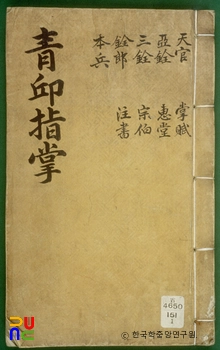 天官 掌賦
亞銓 惠堂
三銓 宗伯
銓郎 注書
本兵
青邱指掌
4650
151
1
© 한국학중앙연구원